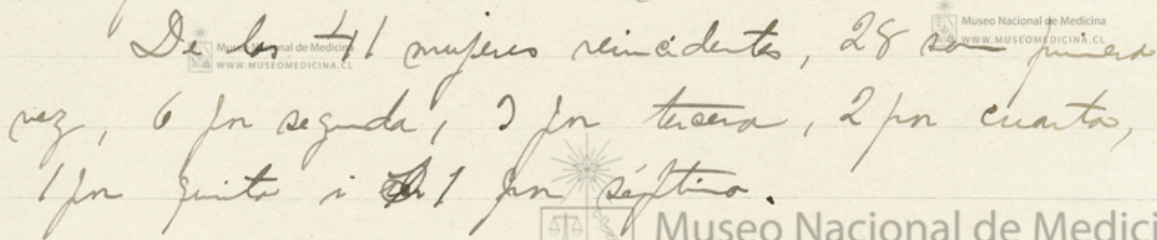 De las 41 mujeres reincidentes, 28 son primera
vez, 6 por segunda, 3 por tercera, 2 por cuarta,
1 por quinta i 1 por séptima.
Museo Nacional de Medicina
WWW.MUSEOMEDICINA.CL
Museo Nacional de Medicina
WWW.MUSEOMEDICINA.CL
Museo Nacional de Medici